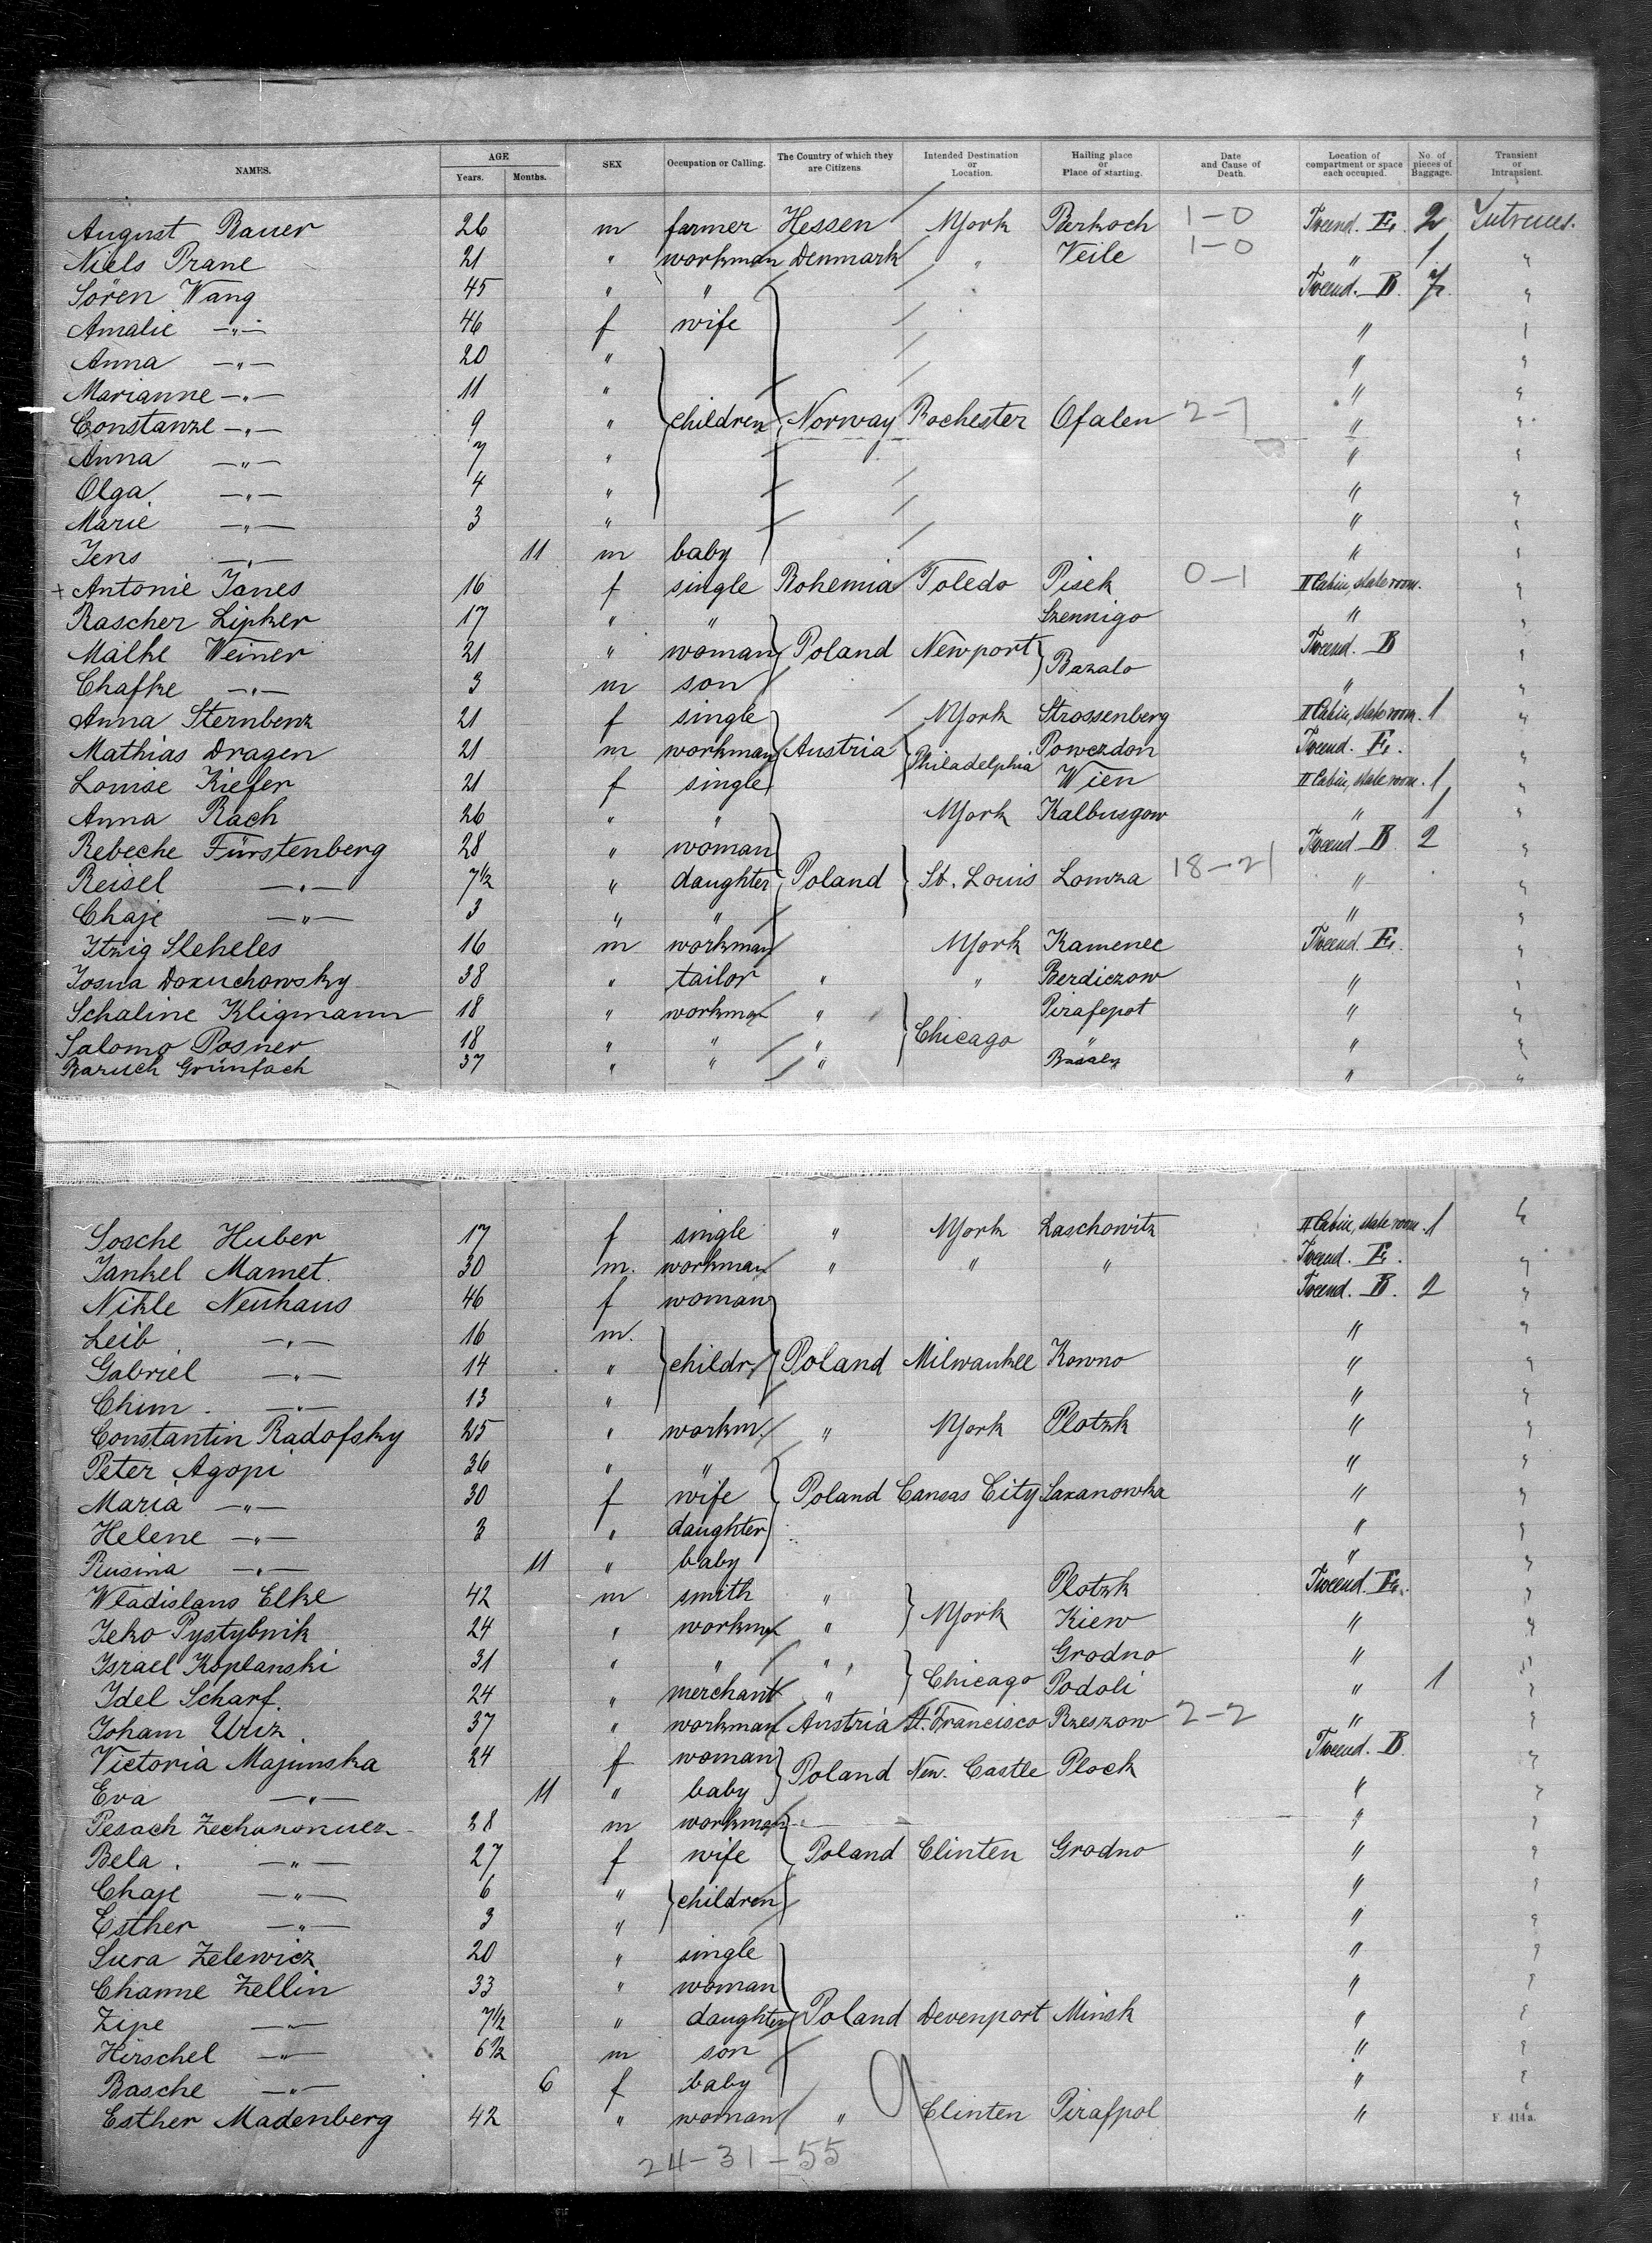 NAMES. AGE Years. Months. SEX Occupation or Calling. The Country of which they are Citizens Intended Destination or Location. Hailing place or Place of starting. Date and Cause of Death. Location of compartment or space each occupied. No. of pieces of Baggage. Transient or Intransient.
August Bauer 26 m farmer Hessen NYork Berkoch 1-0 Tweend. E. 2
Niels Prane 21 " workman Denmark " Veile 1-0 " 1 "
Sören Wang 45 " " Tweend. B 7. "
Amalie —"— 46 f wife " "
Anna —"— 20 " " "
Marianne —"— 11 " " "
Constanze —"— 9 " children Norway Rochester Ofalen 2-7 " "
Anna —"— 7 " " "
Olga —"— 4 " " "
Marie —"— 3 " " "
Jens —"— 11 m baby " "
+ Antonie Janes 16 f single Bohemia Toledo Pisek 0-1 II Cabin, state room. "
Rascher Lipker 17 " " Szennigo " "
Malke Weiner 21 " woman Poland Newport Bazalo Tweend. B "
Chafke —"— 3 m son " "
Anna Sternbenz 21 f single NYork Strossenberg II Cabin, state room. 1 "
Mathias Dragen 21 m workman Austria Philadelphia Powezdon Tweend. E. "
Louise Kiefer 21 f single Wien II Cabin, state room. 1 "
Anna Rach 26 " " NYork Kalbusgow " 1 "
Rebeche Fürstenberg 28 " woman Tweend. B 2 "
Reisel —"— 7½ " daughter Poland St. Louis Lomza 18-21 " "
Chaje —"— 3 " " " "
Itzig Sleheles 16 m workman NYork Kamenec Tweend. E. "
Josua Doxuchowsky 38 " tailor " " Berdiczow " "
Schaline Kligmann 18 " workman " Chicago Pirafepot " "
Salomo Posner 18 " " " " " "
Baruch Grünfach 37 " " " " "
Sosche Huber 17 f single " NYork Laschowitz II Cabin, state room. 1 "
Jankel Mamet. 30 m. workman " " " Tweend. E. "
Nikle Neuhaus 46 f woman Tweend. B. 2 "
Leib —"— 16 m. " "
Gabriel —"— 14 " childr. Poland Milwaukee Kowno " "
Chim. —"— 13 " " "
Constantin Radofsky 25 " workm. " NYork Plotzk " "
Peter Agopi 36 " " " "
Maria —"— 30 f wife Poland Cansas City Saxanowka " "
Helene —"— 3 " daughter " "
Rusina —"— 11 " baby " "
Wladislaus Elke 42 m smith " NYork Plotzk Tweend. E. "
Jeko Pystybnik 24 " workman " Kiew " "
Israel Koplanski 31 " " " Chicago Grodno " "
Idel Scharf. 24 " merchant " Podoli " 1 "
Joham Uriz 37 " workman Austria St. Francisco Rzeszow 2-2 " "
Victoria Majunska 24 f woman Poland New. Castle Plock Tweend. B. "
Eva —"— 11 " baby " "
Pesach 28 m workman " "
Bela. —"— 27 f wife Poland Clinten Grodno " "
Chaje —"— 6 " children " "
Esther —"— 3 " " "
Sura Zelewicz 20 " single " "
Channe Zellin 33 " woman " "
Zipe —"— 7½ " daughter Poland Devenport Minsk " "
Hirschel —"— 6½ m son " "
Basche —"— 6 f baby " "
Esther Madenberg 42 " woman " Clinten Pirafpol " "
F 414a.
24-31-55